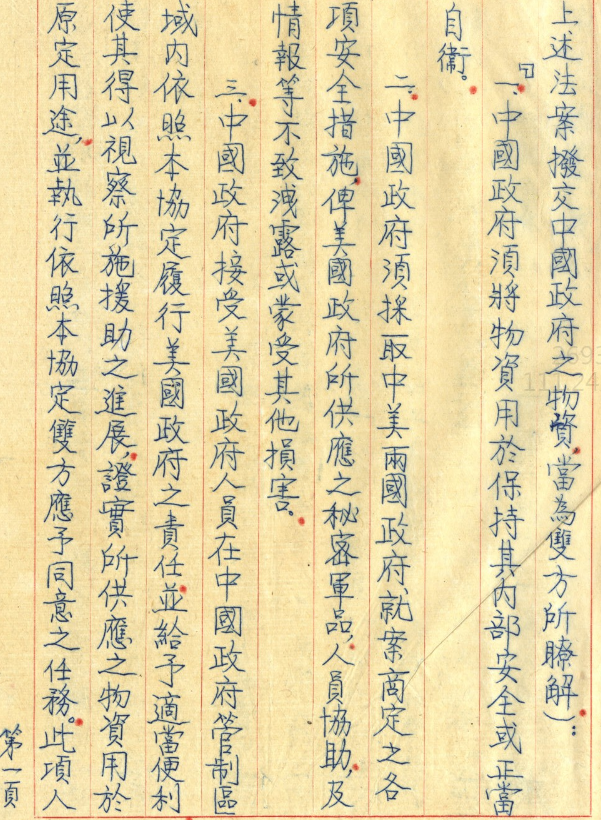 上述法案撥交中國政府之物資,當為雙方所瞭解):
「一、中國政府須將物資用於保持其內部安全或正當
自衛。
二、中國政府須採取中美兩國政府、就案商定之各
項安全措施,俾美國政府所供應之秘密軍品,人員協助,及
情報等不致洩露或蒙受其他損害。
三、中國政府接受美國政府人員在中國政府管制區
域內依照本協定履行美國政府之責任,並給予適當便利
使其得以視察所施援助之進展,證實所供應之物資用於
原定用途,並執行依照本協定雙方應予同意之任務。此項人
第一頁